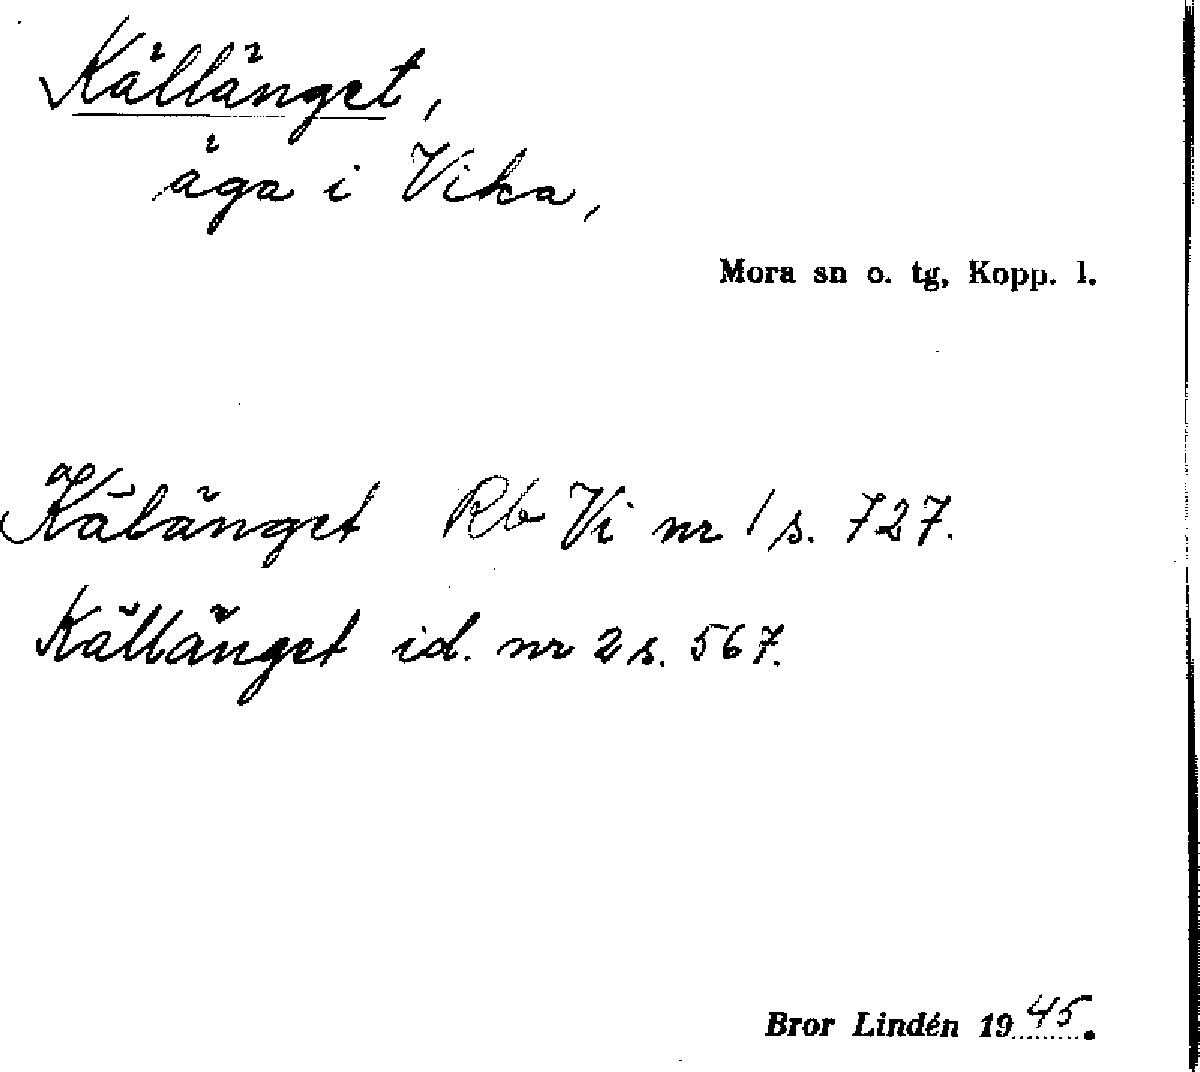 Källänget,
äga i Vika,
Mora sn o. tg, Kopp. l.
Källänget Rb Vi nr 1 s. 727.
Källänget id. nr 2 s. 567.
Bror Lindén 1945.